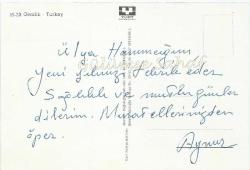 16-28 Gemlik - Turkey
Ülya Hanımcığım
Yeni yılınızı tebrik eder
Sağlıklı ve mutlu günler
dilerim. Murat ellerinizden
öper.
Aynur